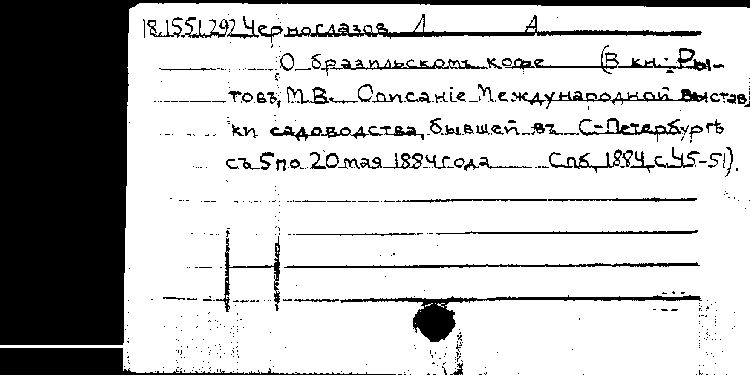 18.155.1.292 Черноглазов Л А
О бразильскомъ кофе (В кн.: Ры-
товъ, М.В. Описаніе Международной выстав
ки садоводства, бывшей въ С-Петербургѣ
съ 5 по 20 мая 1884 года Спб, 1884, с. 45-51).